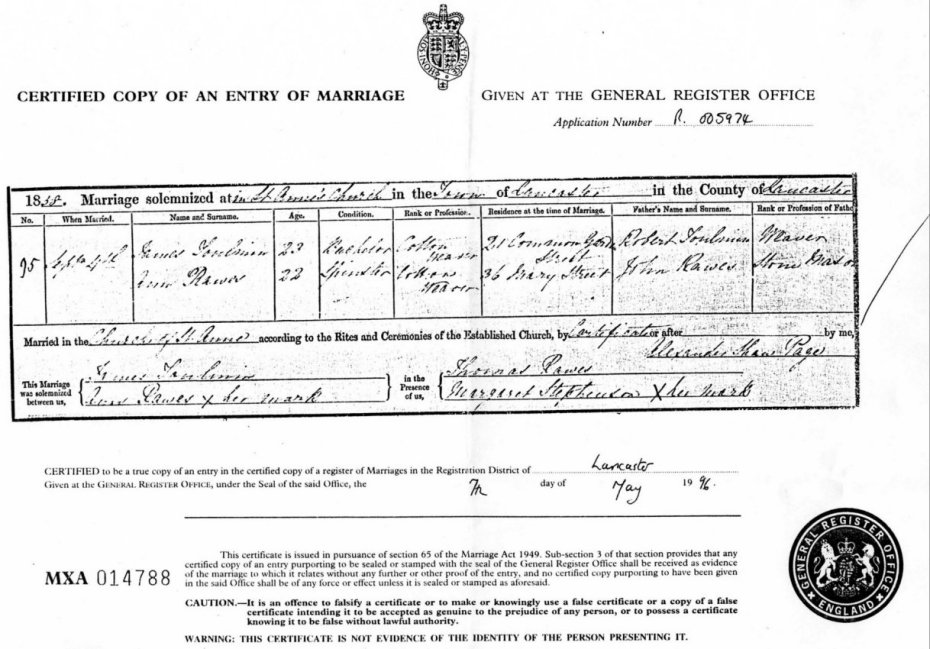 CERTIFIED COPY OF AN ENTRY OF MARRIAGE
GIVEN AT THE GENERAL REGISTER OFFICE
Application Number R. 005974
1838. Marriage solemnized at in St Anne's Church in the Town of Lancaster in the County of Lancaster
No. When Married. Name and Surname. Age. Condition. Rank or Profession. Residence at the time of Marriage. Father's Name and Surname. Rank or Profession of Fathe
95 4th James Toulmin 23 Bachelor Cotton Weaver 21 Common Street Robert Toulmin Weaver
Ann Rawes 22 Spinster Cotton Weaver 36 Mary Street John Rawes Stone Mason
Married in the Church of St Anne according to the Rites and Ceremonies of the Established Church, by Certificate or after by me,
Alexander Shaw Page
This Marriage was solemnized between us,
James Toulmin
Ann Rawes X her mark
in the Presence of us,
Thomas Rawes
Margaret Stephenson X her mark
CERTIFIED to be a true copy of an entry in the certified copy of a register of Marriages in the Registration District of Lancaster
Given at the GENERAL REGISTER OFFICE, under the Seal of the said Office, the 7th day of May 1996.
MXA 014788
This certificate is issued in pursuance of section 65 of the Marriage Act 1949. Sub-section 3 of that section provides that any
certified copy of an entry purporting to be sealed or stamped with the seal of the General Register Office shall be received as evidence
of the marriage to which it relates without any further or other proof of the entry, and no certified copy purporting to have been given
in the said Office shall be of any force or effect unless it is sealed or stamped as aforesaid.
CAUTION.—It is an offence to falsify a certificate or to make or knowingly use a false certificate or a copy of a false
certificate intending it to be accepted as genuine to the prejudice of any person, or to possess a certificate
knowing it to be false without lawful authority.
WARNING: THIS CERTIFICATE IS NOT EVIDENCE OF THE IDENTITY OF THE PERSON PRESENTING IT.
GENERAL REGISTER OFFICE
ENGLAND